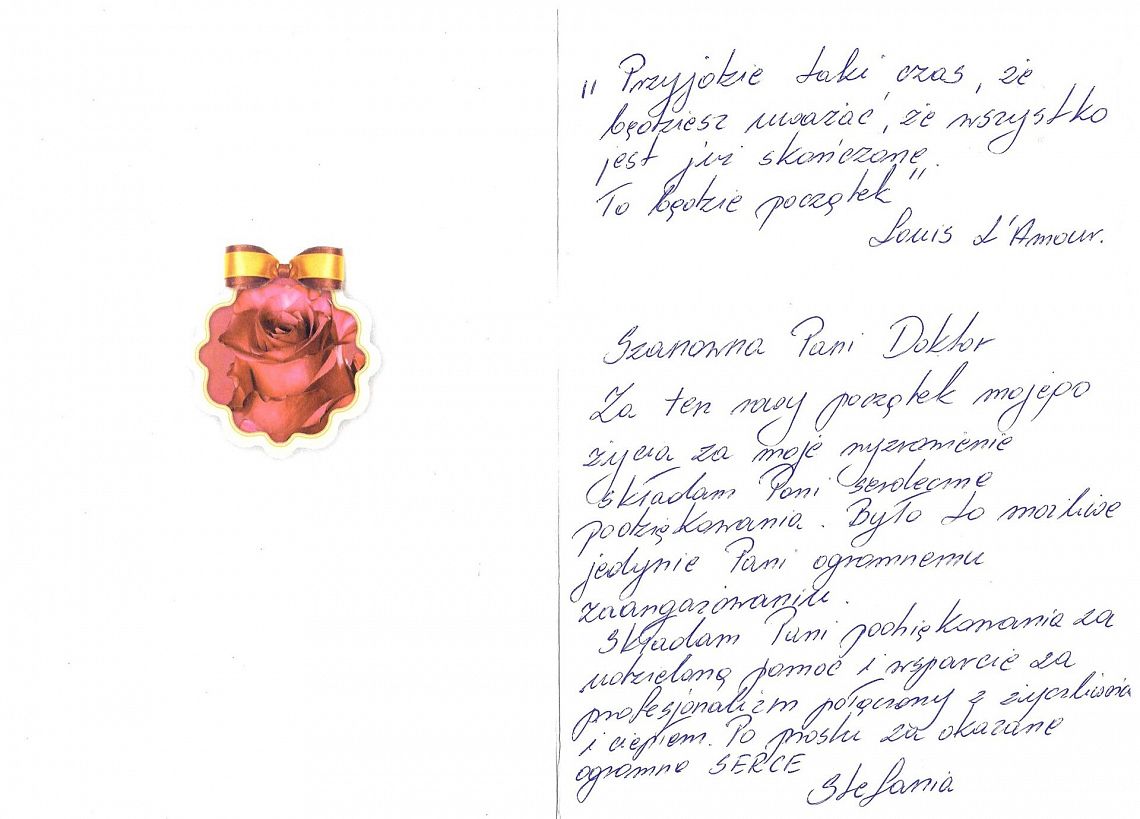 „Przyjdzie taki czas, że
będziesz uważać, że wszystko
jest już skończone.
To będzie początek"
Louis L'Amour.
Szanowna Pani Doktor
Za ten nowy początek mojego
życia za moje wyzwolenie
składam Pani serdeczne
podziękowania. Było to możliwe
jedynie Pani ogromnemu
zaangażowaniu.
Składam Pani podziękowania za
udzieloną pomoc i wsparcie za
profesjonalizm połączony z życzliwością
i ciepłem. Po prostu za okazane
ogromne SERCE
Stefania